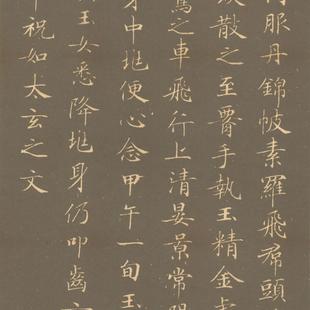 服丹錦帔素羅飛帬頭
散之至腰手執玉精金虎
之車飛行上清晏景常陽
身中兆便心念甲午一旬玉
玉女悉降兆身仍叩齒
祝如太玄之文